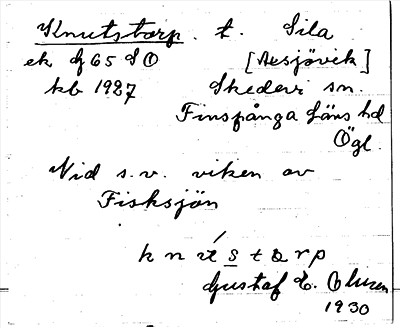 Knutstorp t. Sila
ek bl 65 S O [Aesjövik]
kb 1927 Skedevi sn.
Finspånga läns hd
Ögl.
Vid s.v. viken av
Fisksjön
k n u s t o r p
Gustaf E. Olsson
1930